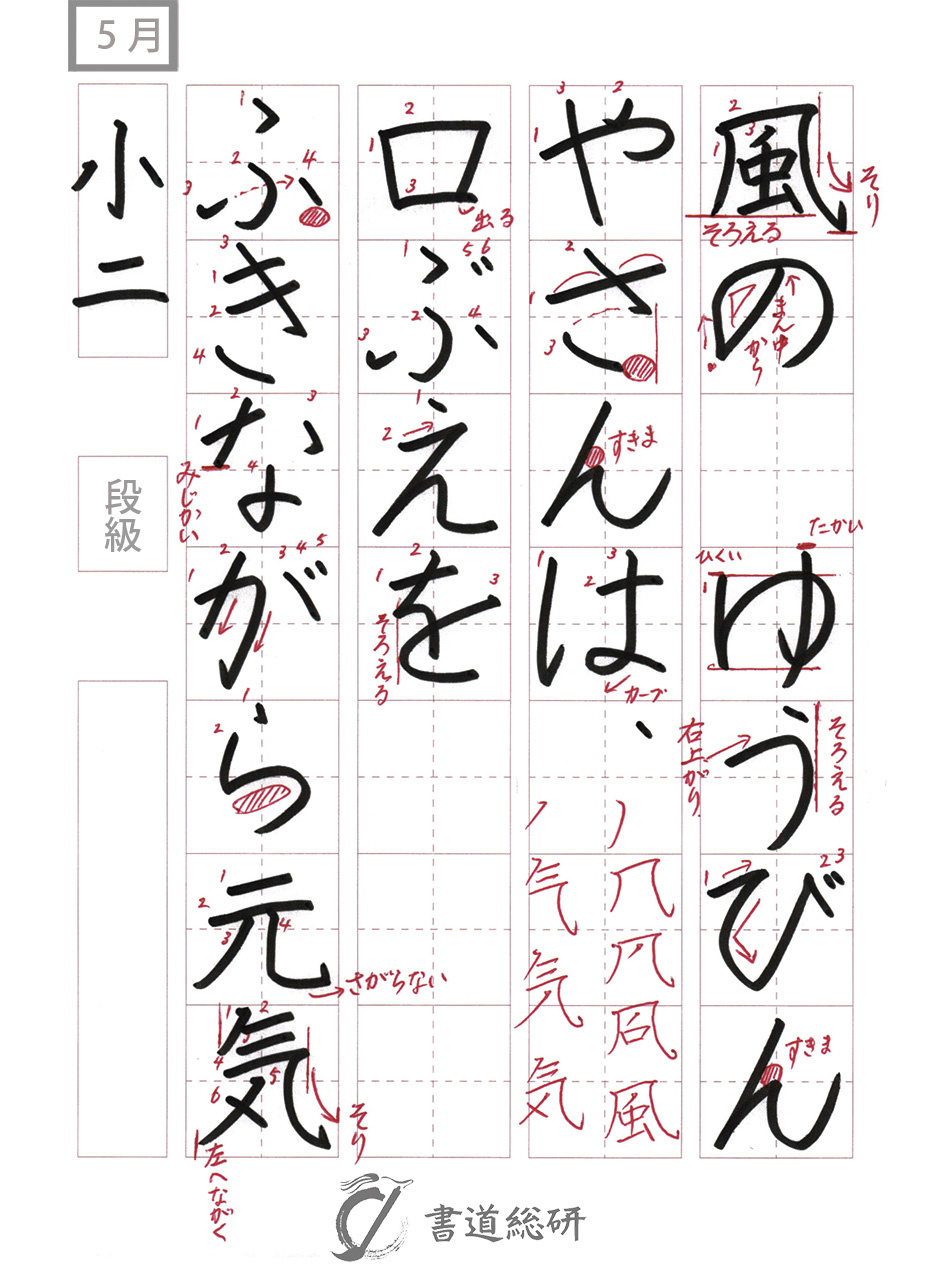 5月
風の ゆうびん
やさんは、
口ぶえを
ふきながら元気
小二
段級
そり
そろえる
まん中から
たかい
ひくい
そろえる
右上がり
すきま
すきま
カーブ
出る
そろえる
みじかい
さがらない
そり
左へながく
書道総研